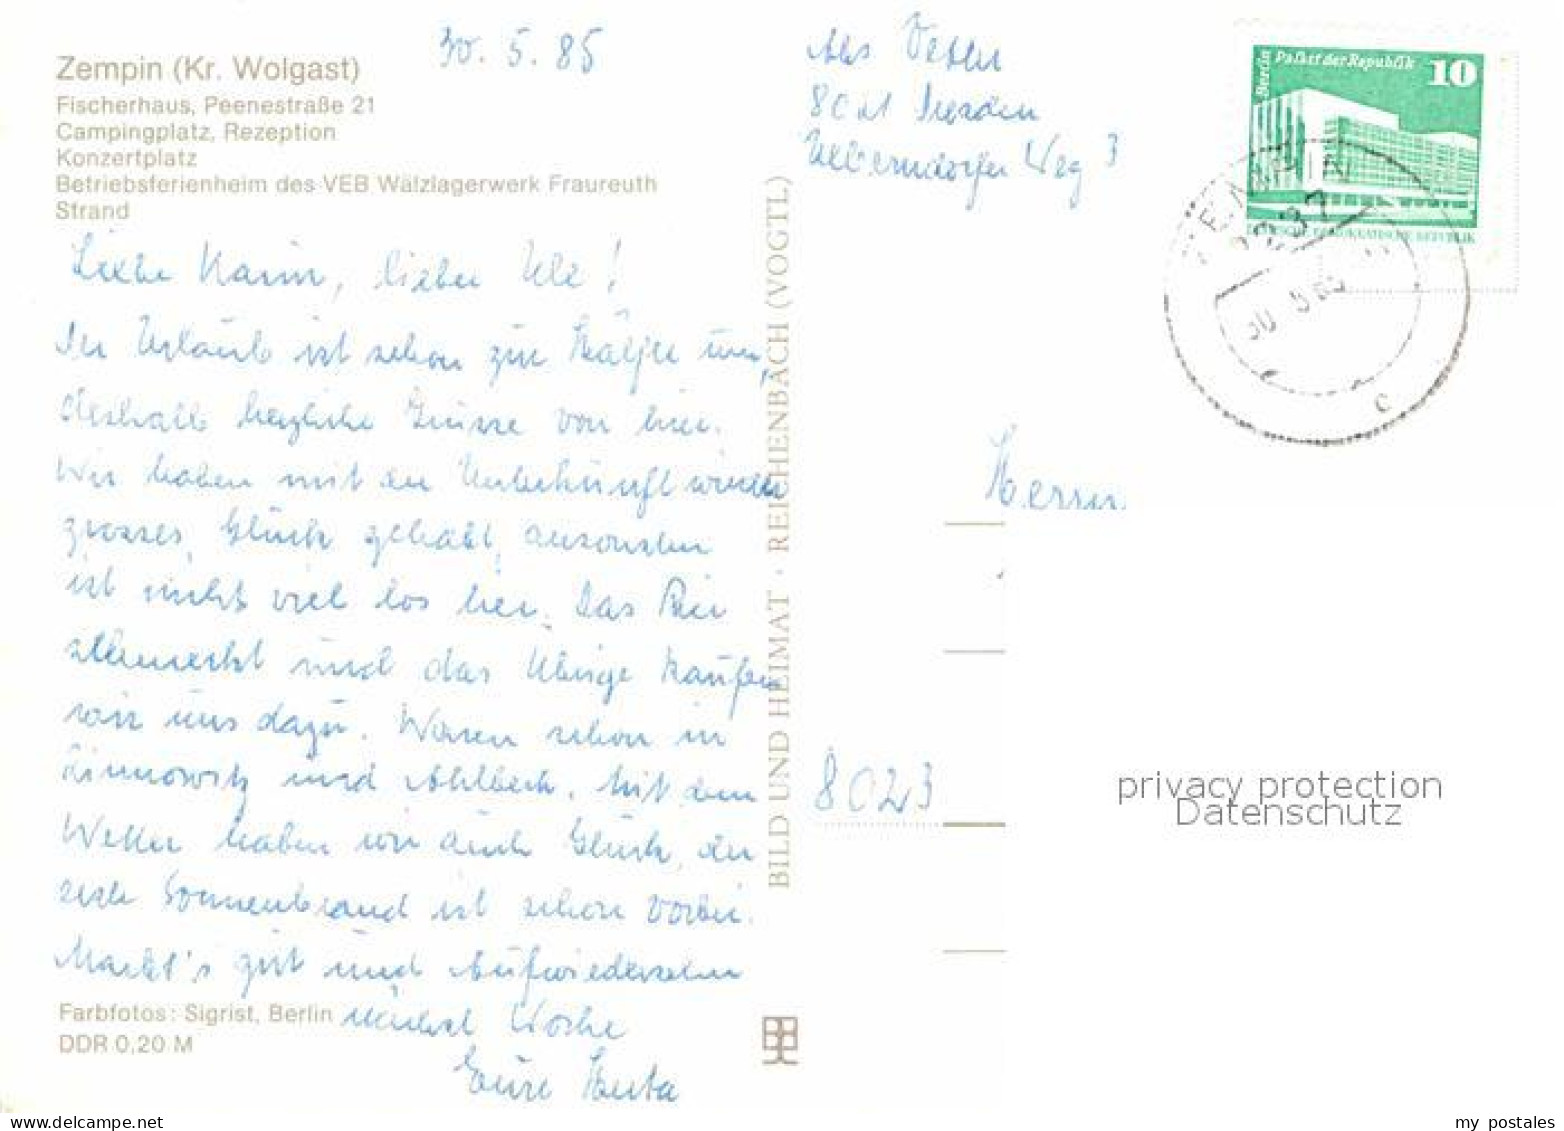 Zempin (Kr. Wolgast)
Fischerhaus, Peenestraße 21
Campingplatz, Rezeption
Konzertplatz
Betriebsferienheim des VEB Wälzlagerwerk Fraureuth
Strand
30. 5. 85
Liebe Karin, lieber Ulr !
Der Urlaub ist schon zur Hälfte um,
deshalb herzliche Grüsse von hier.
Wir haben mit der Unterkunft wieder
grosses Glück gehabt, ansonsten
ist nicht viel los hier. Das Bier
schmeckt und das Übrige kaufen
wir uns dazu. Waren schon in
Zinnowitz und Ahlbeck. Mit dem
Wetter haben wir auch Glück, der
erste Sonnenbrand ist schon vorbei.
Macht's gut und Aufwiedersehn
nächste Woche
Eure Herta
Farbfotos: Sigrist, Berlin
DDR 0,20 M
BILD UND HEIMAT · REICHENBACH (VOGTL)
Abs Vetter
8021 Dresden
Weg 3
Berlin
Palast der Republik 10
DEUTSCHE DEMOKRATISCHE REPUBLIK
ZEMPIN
2237
30 5 85
c
Herrn
8023
privacy protection
Datenschutz
www.delcampe.net
my postales